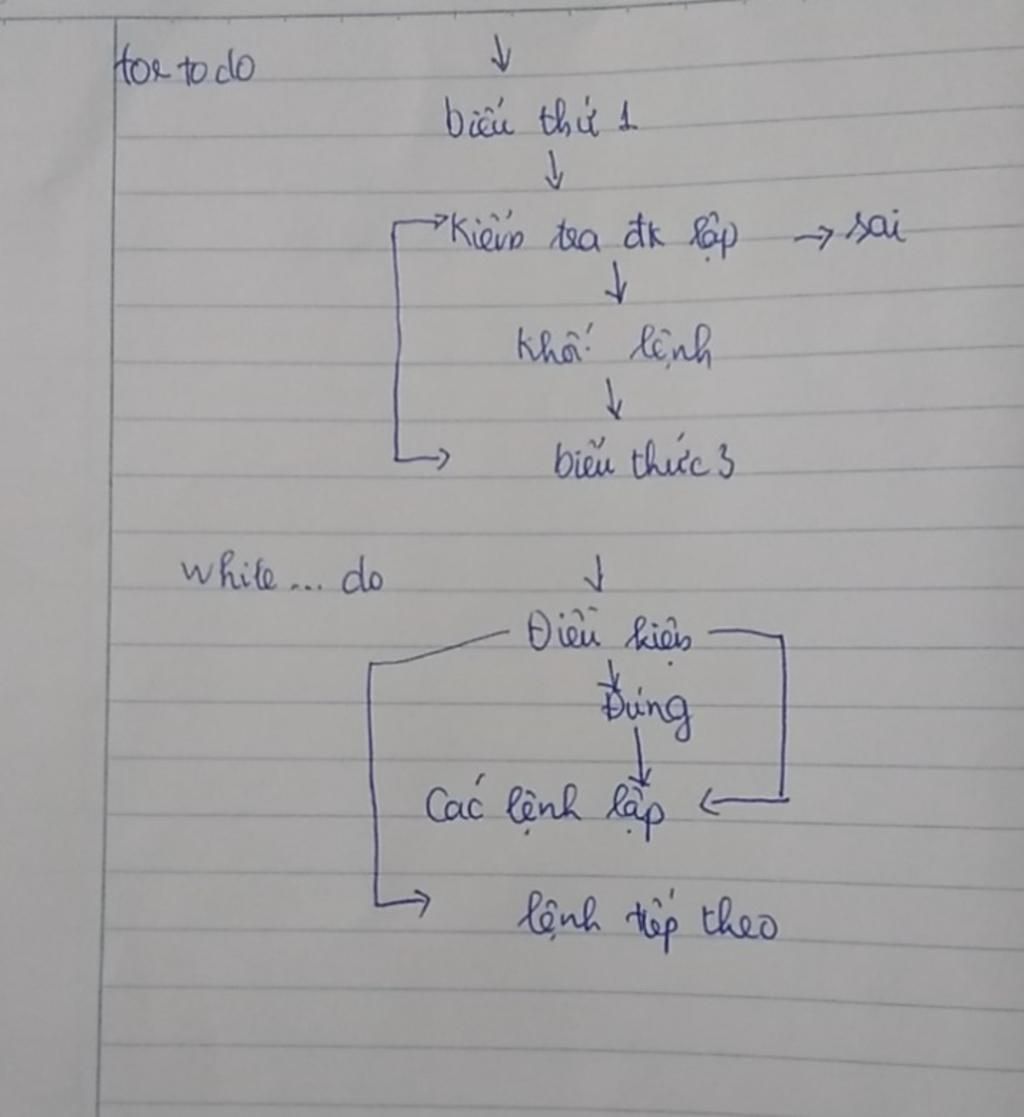 for to do
biểu thứ 1
Kiểm tra đk lập → sai
Khối lệnh
biểu thức 3
while... do
Điều kiện
Đúng
Các lệnh lặp
lệnh tiếp theo